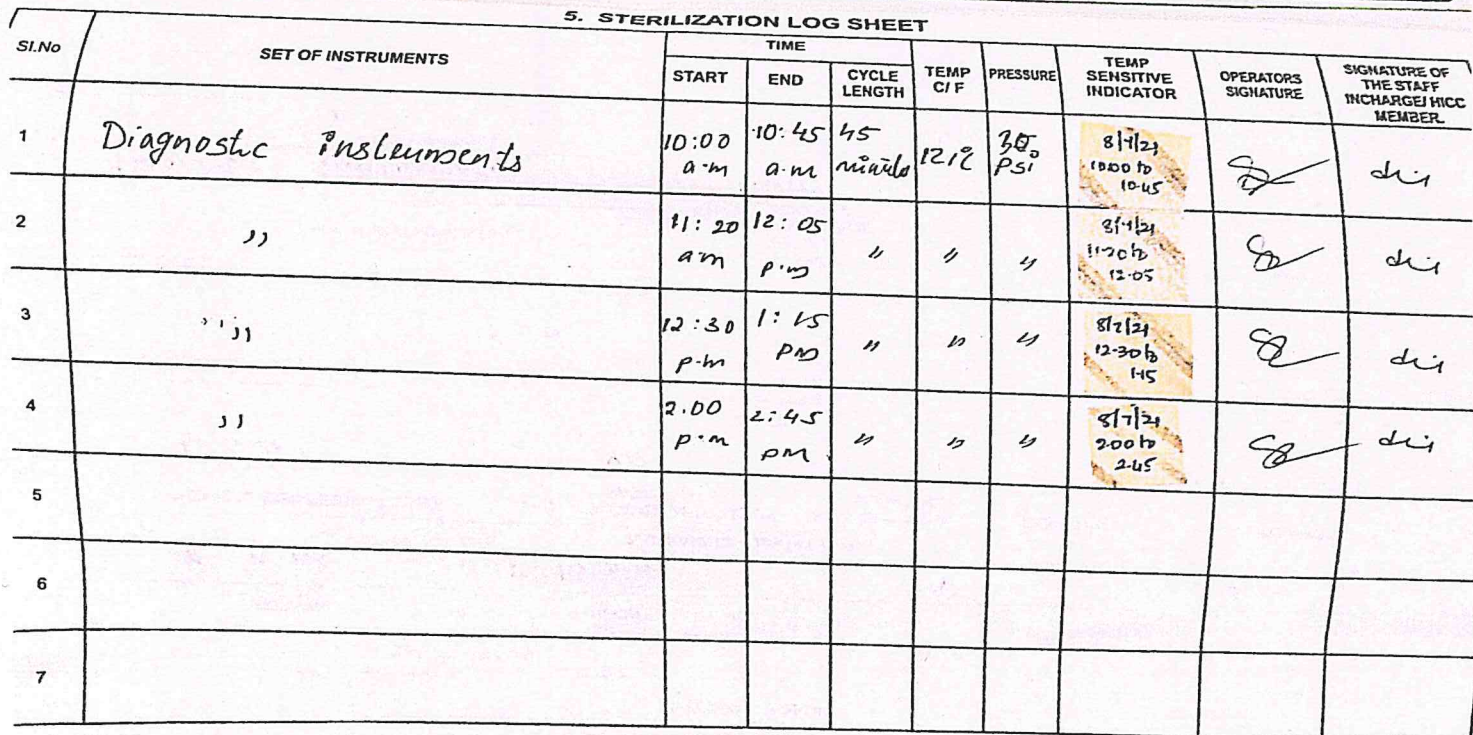 5. STERILIZATION LOG SHEET
Sl.No SET OF INSTRUMENTS TIME START END CYCLE LENGTH TEMP C/ F PRESSURE TEMP SENSITIVE INDICATOR OPERATORS SIGNATURE SIGNATURE OF THE STAFF INCHARGE/ HICC MEMBER
1 Diagnostic instruments 10:00 a.m 10:45 a.m 45 121°C PSI 10:00 to 10.45
2 ,, 11:20 am 12:05 p.m " " " 11-20 to 12.05
3 ,, 12:30 p.m 1:15 PM " " " 8/7/21 12-30 to 1-15
4 ,, 2.00 p.m 2:45 PM " " " 8/7/21 2.00 to 2.45
5
6
7